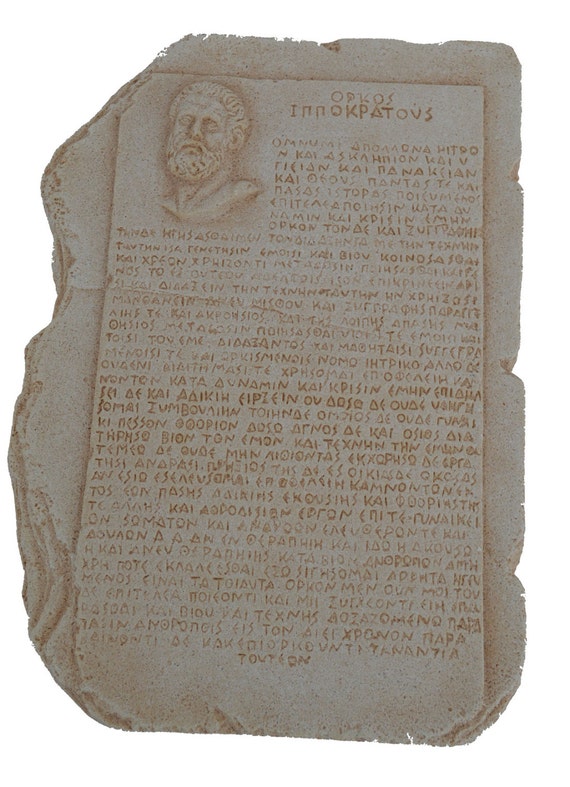 ΟΡΚΟΣ
ΙΠΠΟΚΡΑΤΟΥΣ
ΟΜΝΥΜΙ ΑΠΟΛΛΩΝΑ ΙΗΤΡΟ
Ν ΚΑΙ ΑΣΚΛΗΠΙΟΝ ΚΑΙ Υ
ΓΙΕΙΑΝ ΚΑΙ ΠΑΝΑΚΕΙΑΝ
ΚΑΙ ΘΕΟΥΣ ΠΑΝΤΑΣ ΤΕ ΚΑΙ
ΠΑΣΑΣ ΙΣΤΟΡΑΣ ΠΟΙΕΥΜΕΝΟΣ
ΕΠΙΤΕΛΕΑ ΠΟΙΗΣΙΝ ΚΑΤΑ ΔΥ
ΝΑΜΙΝ ΚΑΙ ΚΡΙΣΙΝ ΕΜΗΝ
ΟΡΚΟΝ ΤΟΝΔΕ ΚΑΙ ΣΥΓΓΡΑΦΗ
ΤΗΝΔΕ ΜΕ ΤΗΝ ΤΕΧΝΗΝ
ΤΑΥΤΗΝ ΙΣΑ ΓΕΝΕΤΗΣΙΝ ΕΜΟΙΣΙ ΚΑΙ ΒΙΟΥ ΚΟΙΝΟΣΑΣΘΑΙ
ΚΑΙ ΧΡΕΩΝ ΧΡΗΙΖΟΝΤΙ ΜΕΤΑΔΟΣΙΝ
ΝΟΣ ΤΟ ΕΠΙΚΡΙΝΕΕΙΝ ΑΡΡΕ
ΣΙ ΚΑΙ ΔΙΔΑΞΕΙΝ ΤΗΝ ΤΕΧΝΗΝ ΤΑΥΤΗΝ ΗΝ ΧΡΗΙΖΟΣΙ
ΜΑΝΘΑΝΕΙΝ ΑΝΕΥ ΜΙΣΘΟΥ ΚΑΙ ΣΥΓΓΡΑΦΗΣ ΠΑΡΑΓΓΕ
ΛΙΗΣ ΤΕ ΚΑΙ ΑΚΡΟΗΣΙΟΣ ΚΑΙ ΤΗΣ ΛΟΙΠΗΣ ΑΠΑΣΗΣ ΜΑ
ΘΗΣΙΟΣ ΜΕΤΑΔΟΣΙΝ ΠΟΙΗΣΑΣΘΑΙ ΤΕ ΕΜΟΙΣΙ ΚΑΙ
ΤΟΙΣΙ ΤΟΥ ΕΜΕ ΔΙΔΑΞΑΝΤΟΣ ΚΑΙ ΜΑΘΗΤΑΙΣΙ ΣΥΓΓΕΓΡΑ
ΜΕΝΟΙΣΙ ΤΕ ΚΑΙ ΟΡΚΙΣΜΕΝΟΙΣ ΝΟΜΟ ΙΗΤΡΙΚΟ ΑΛΛΟ ΔΕ
ΟΥΔΕΝΙ ΔΙΑΙΤΗΜΑΣΙ ΤΕ ΧΡΗΣΟΜΑΙ ΕΠ ΟΦΕΛΕΙΗ ΚΑ
ΜΝΟΝΤΟΝ ΚΑΤΑ ΔΥΝΑΜΙΝ ΚΑΙ ΚΡΙΣΙΝ ΕΜΗΝ ΕΠΙ ΔΗΛΗ
ΣΕΙ ΔΕ ΚΑΙ ΑΔΙΚΙΗ ΕΙΡΞΕΙΝ ΟΥ ΔΟΣΟ ΔΕ ΟΥΔΕ ΥΦΗΓΗ
ΣΟΜΑΙ ΣΥΜΒΟΥΛΙΗΝ ΤΟΙΗΝΔΕ ΟΜΟΙΟΣ ΔΕ ΟΥΔΕ ΓΥΝΑΙ
ΚΙ ΠΕΣΣΟΝ ΦΘΟΡΙΟΝ ΔΟΣΟ ΑΓΝΟΣ ΔΕ ΚΑΙ ΟΣΙΟΣ ΔΙΑ
ΤΗΡΗΣΟ ΒΙΟΝ ΤΟΝ ΕΜΟΝ ΚΑΙ ΤΕΧΝΗΝ ΤΗΝ ΕΜΗΝ ΟΥ
ΤΕΜΕΟ ΔΕ ΟΥΔΕ ΜΗΝ ΛΙΘΙΟΝΤΑΣ ΕΚΧΟΡΗΣΟ ΔΕ ΕΡΓΑ
ΤΗΣΙ ΑΝΔΡΑΣΙ ΠΡΗΞΙΟΣ ΤΗΣΔΕ ΕΣ ΟΙΚΙΑΣ ΔΕ ΟΚΟΣΑΣ
ΑΝ ΕΣΙΟ ΕΣΕΛΕΥΣΟΜΑΙ ΕΠ ΟΦΕΛΕΙΗ ΚΑΜΝΟΝΤΟΝ ΕΚ
ΤΟΣ ΕΩΝ ΠΑΣΗΣ ΑΔΙΚΙΗΣ ΕΚΟΥΣΙΗΣ ΚΑΙ ΦΘΟΡΙΗΣ ΤΗΣ
ΤΕ ΑΛΛΗΣ ΚΑΙ ΑΦΡΟΔΙΣΙΩΝ ΕΡΓΟΝ ΕΠΙ ΤΕ ΓΥΝΑΙΚΕΙ
ΩΝ ΣΩΜΑΤΟΝ ΚΑΙ ΑΝΔΡΩΩΝ ΕΛΕΥΘΕΡΟΝ ΤΕ ΚΑΙ
ΔΟΥΛΟΝ Α Δ ΑΝ ΕΝ ΘΕΡΑΠΗΙΗ ΚΑΙ ΙΔΩ Η ΑΚΟΥΣΩ
Η ΚΑΙ ΑΝΕΥ ΘΕΡΑΠΗΙΗΣ ΚΑΤΑ ΒΙΟΝ ΑΝΘΡΩΠΩΝ Α ΜΗ
ΧΡΗ ΠΟΤΕ ΕΚΛΑΛΕΕΣΘΑΙ ΕΞΩ ΣΙΓΗΣΟΜΑΙ ΑΡΡΗΤΑ ΗΓΕΥ
ΜΕΝΟΣ ΕΙΝΑΙ ΤΑ ΤΟΙΑΥΤΑ ΟΡΚΟΝ ΜΕΝ ΟΥΝ ΜΟΙ ΤΟΝ
ΔΕ ΕΠΙΤΕΛΕΑ ΠΟΙΕΟΝΤΙ ΚΑΙ ΜΗ ΣΥΓΧΕΟΝΤΙ ΕΙΗ ΕΠΑΥ
ΡΑΣΘΑΙ ΚΑΙ ΒΙΟΥ ΚΑΙ ΤΕΧΝΗΣ ΔΟΞΑΖΟΜΕΝΟ ΠΑΡΑ
ΠΑΣΙΝ ΑΝΘΡΩΠΟΙΣ ΕΙΣ ΤΟΝ ΑΙΕΙ ΧΡΟΝΟΝ ΠΑΡΑ
ΒΑΙΝΟΝΤΙ ΔΕ ΚΑΙ ΕΠΙΟΡΚΟΥΝΤΙ ΤΑΝΑΝΤΙΑ
ΤΟΥΤΕΩΝ